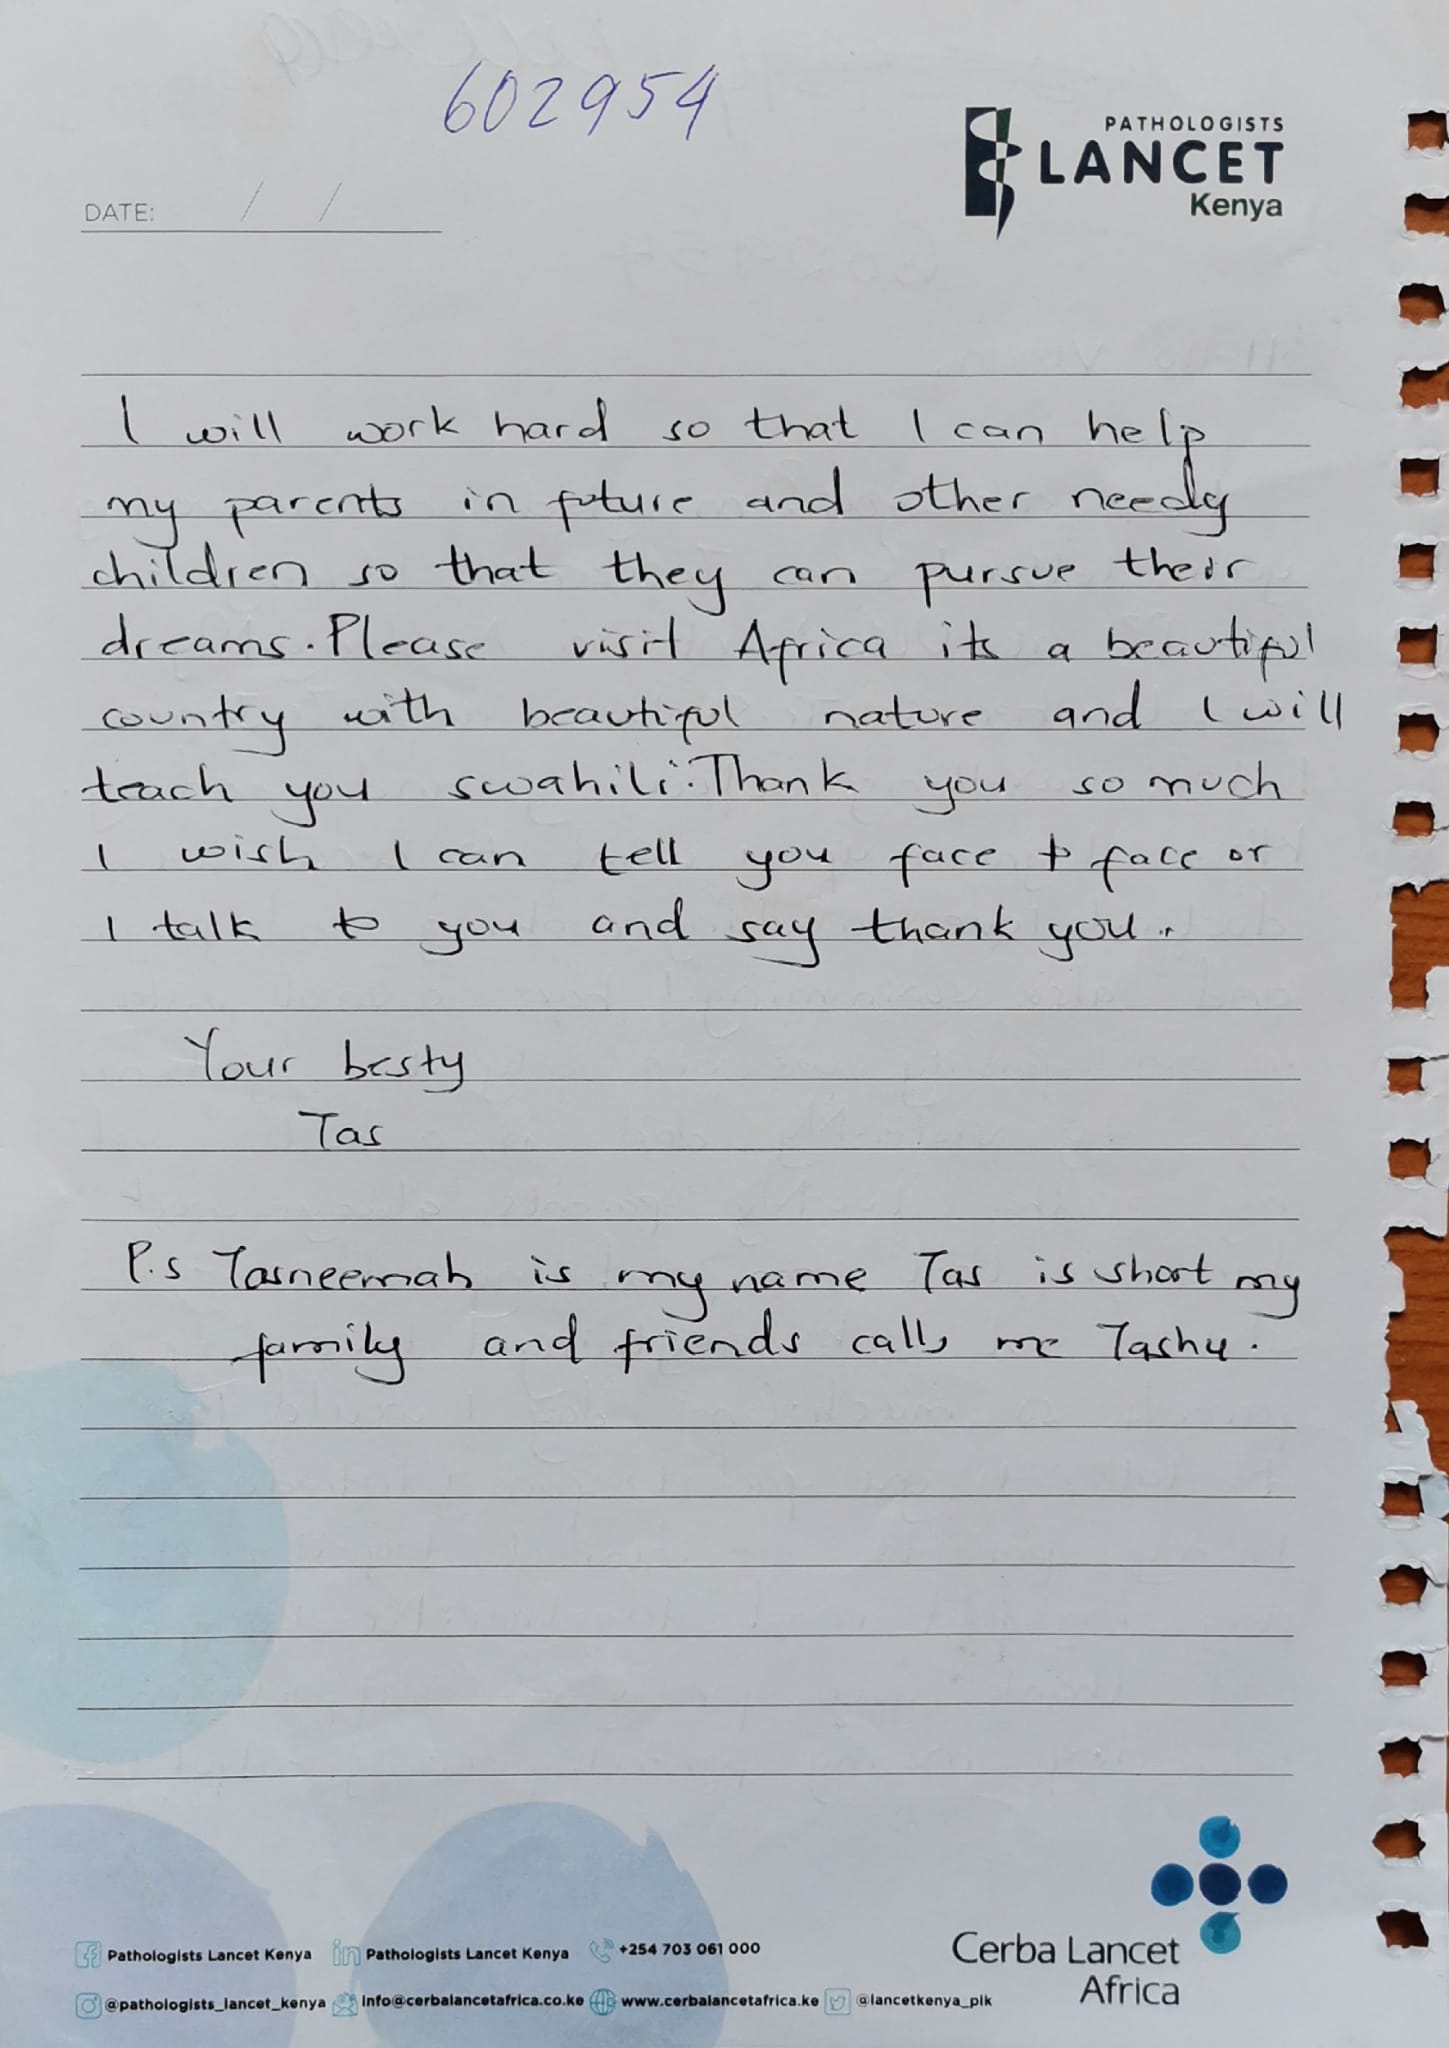 602954
PATHOLOGISTS
LANCET
Kenya
DATE: / /
I will work hard so that I can help
my parents in future and other needy
children so that they can pursue their
dreams. Please visit Africa its a beautiful
country with beautiful nature and I will
teach you swahili. Thank you so much
I wish I can tell you face to face or
I talk to you and say thank you.
Your besty
Tas
P.s Tasneemah is my name Tas is short my
family and friends calls me Tashu.
Cerba Lancet
Africa
Pathologists Lancet Kenya Pathologists Lancet Kenya +254 703 061 000
@pathologists_lancet_kenya Info@cerbalancetafrica.co.ke www.cerbalancetafrica.ke @lancetkenya_plk